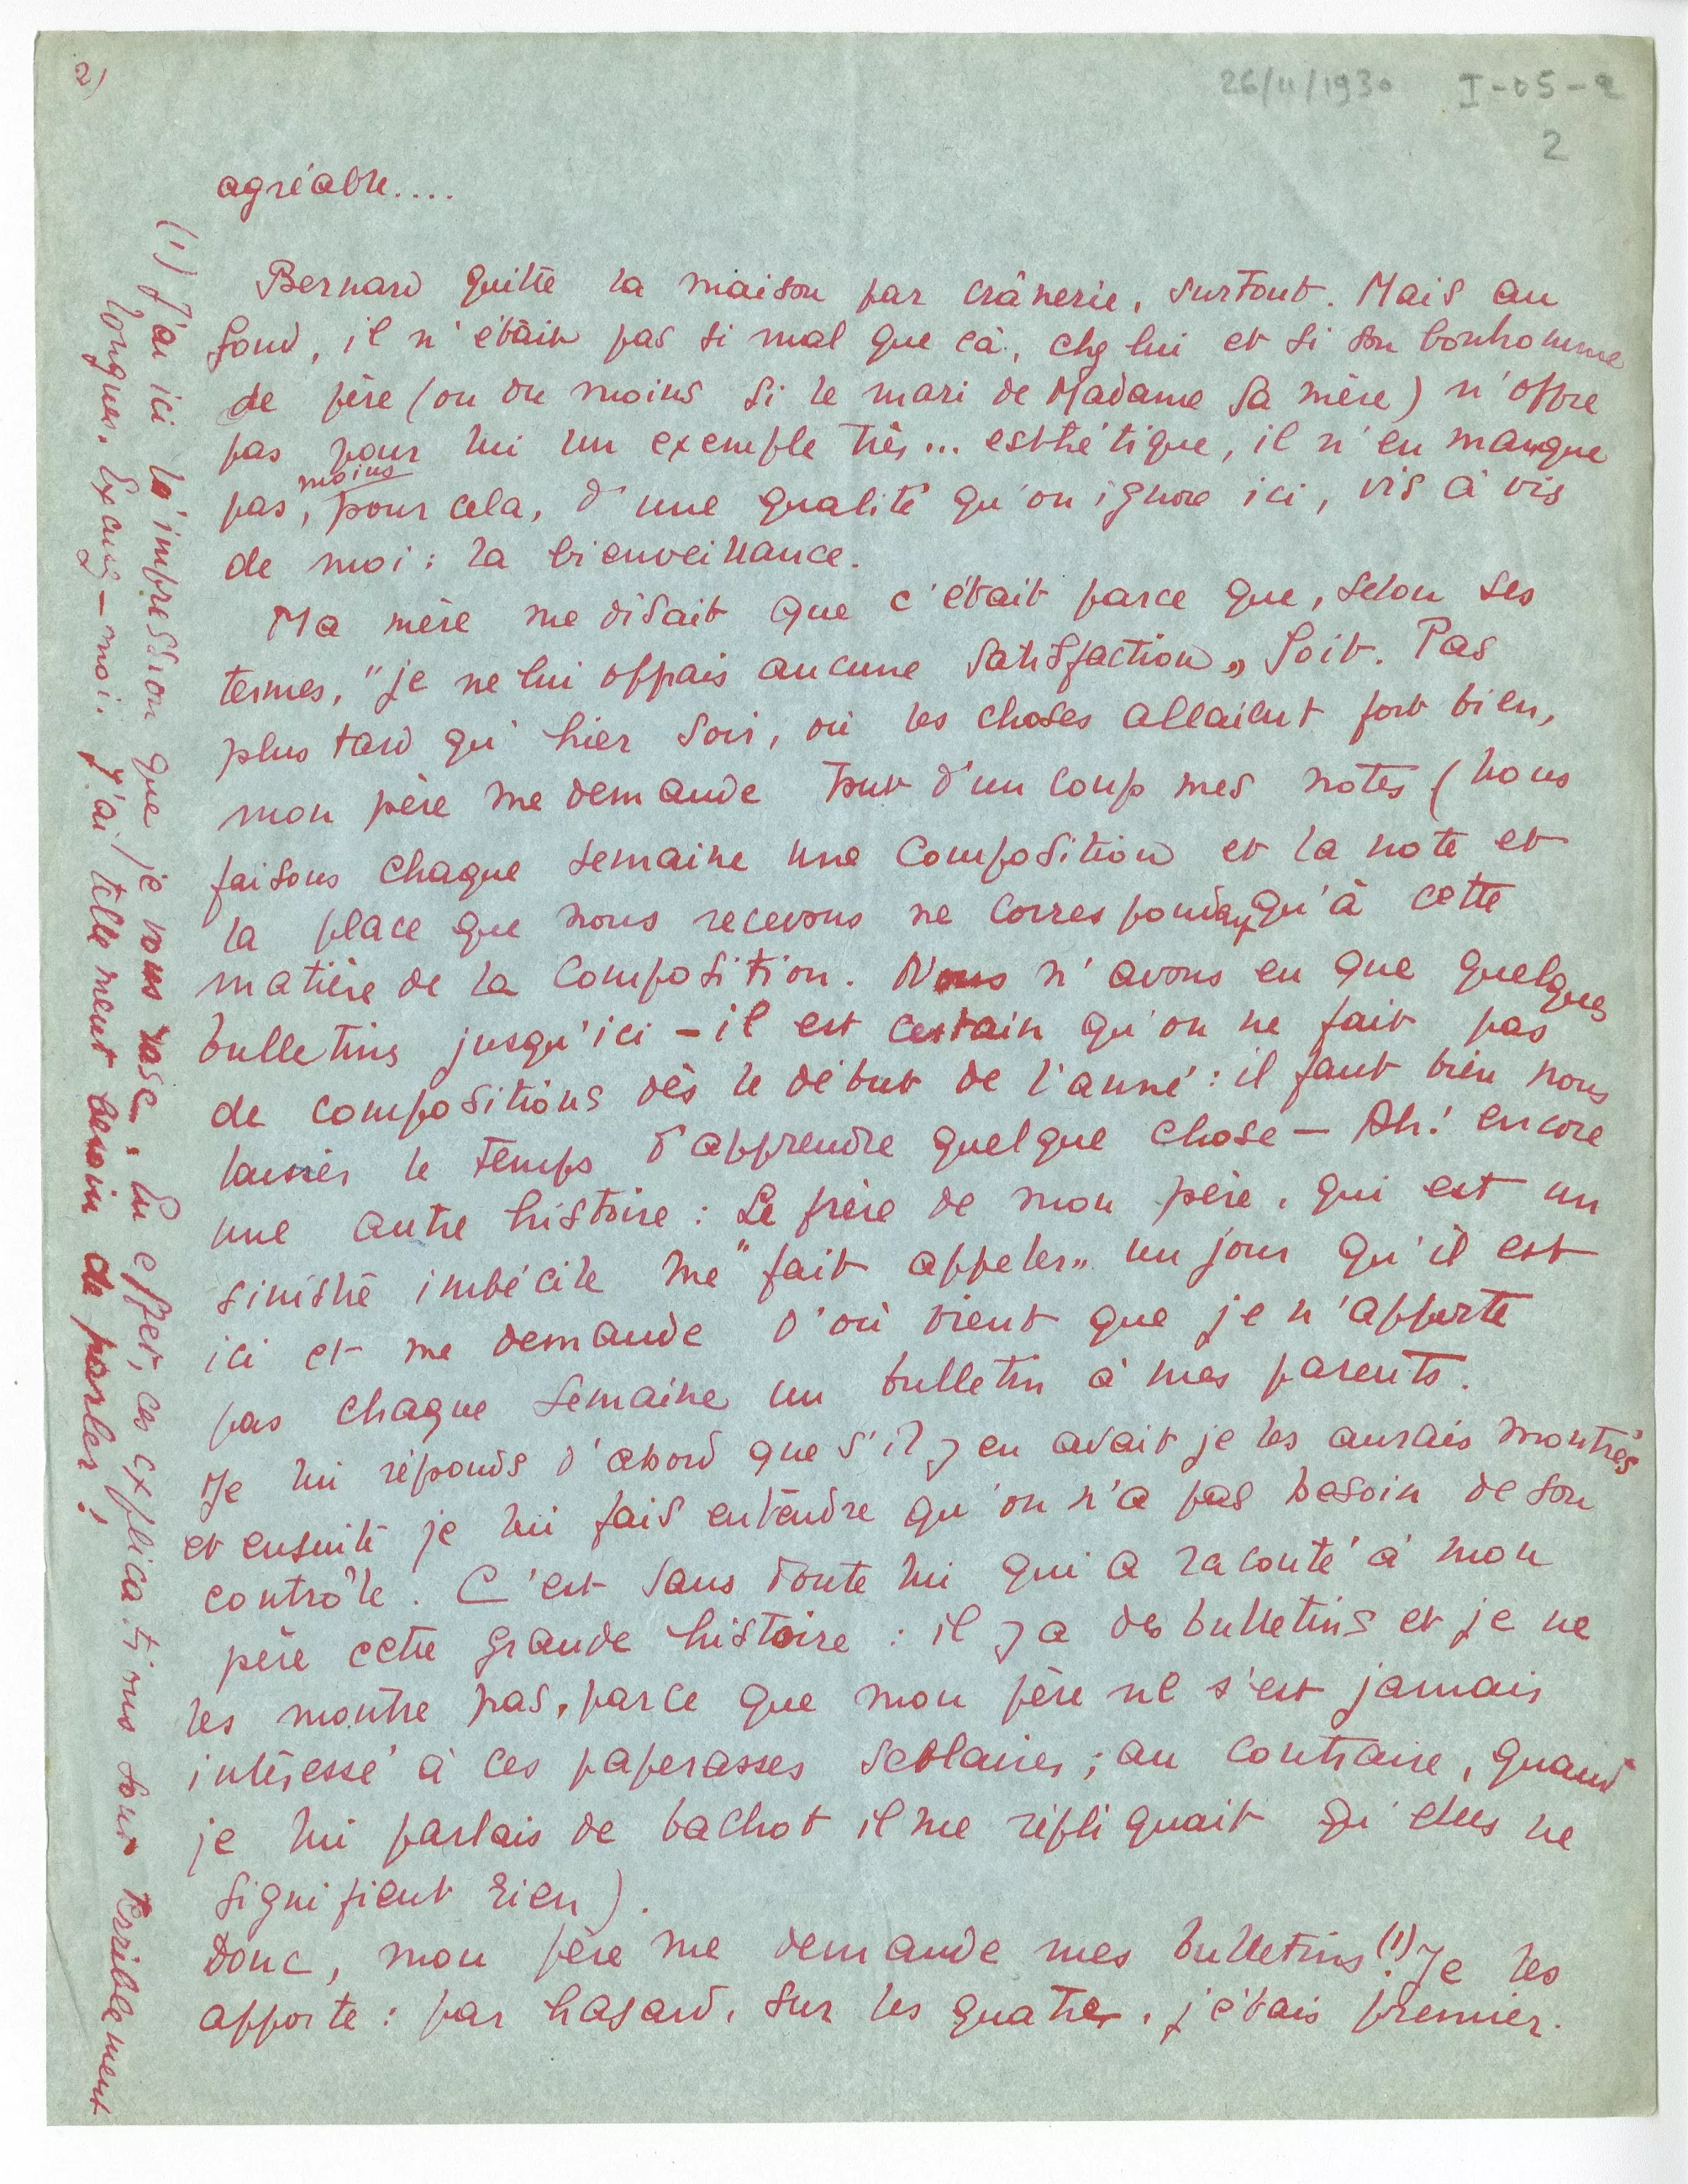 2)
26/11/1930 I-05-2
2
agréable....
Bernard quitte la maison par crânerie, surtout. Mais au
fond, il n'était pas si mal que cà, chez lui et si son bonhomme
de père (ou du moins si le mari de Madame sa mère) n'offre
pas pour lui un exemple très... esthétique, il n'en manque
pas, moins pour cela, d'une qualité qu'on ignore ici, vis à vis
de moi : la bienveillance.
Ma mère me disait que c'était parce que, selon ses
termes, "je ne lui offrais aucune satisfaction„ Soit. Pas
plus tard qu'hier soir, où les choses allaient fort bien,
mon père me demande tout d'un coup mes notes (nous
faisons chaque semaine une composition et la note et
la place que nous recevons ne correspondent qu'à cette
matière de la composition. Nous n'avons eu que quelques
bulletins jusqu'ici – il est certain qu'on ne fait pas
de compositions dès le début de l'anné : il faut bien nous
laisser le temps d'apprendre quelque chose – Ah! encore
une autre histoire : Le frère de mon père, qui est un
sinistre imbécile me "fait appeler„ un jour qu'il est
ici et me demande d'où vient que je n'apporte
pas chaque semaine un bulletin à mes parents.
Je lui réponds d'abord que s'il y en avait je les aurais montrés
et ensuite je lui fais entendre qu'on n'a pas besoin de son
contrôle. C'est sans doute lui qui a raconté à mon
père cette grande histoire : il y a des bulletins et je ne
les montre pas, parce que mon père ne s'est jamais
intéressé à ces paperasses scolaires ; au contraire, quand
je lui parlais de bachot il me répliquait qu'elles ne
signifient rien).
Donc, mon père me demande mes bulletins(1). Je les
apporte : par hasard, sur les quatre, j'étais premier.
(1) J'ai ici l'impression que je vous rase. En effet, ces explications sont terriblement
longues. Excusez-moi. J'ai tellement besoin de parler!